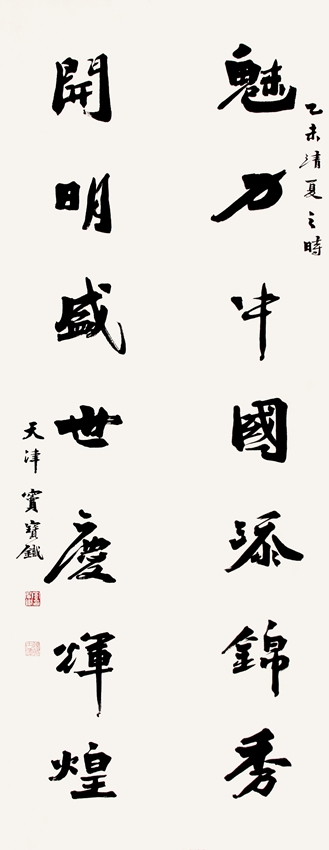 乙未清夏之時
魅力中國添錦秀
開明盛世慶輝煌
天津竇寶鐵